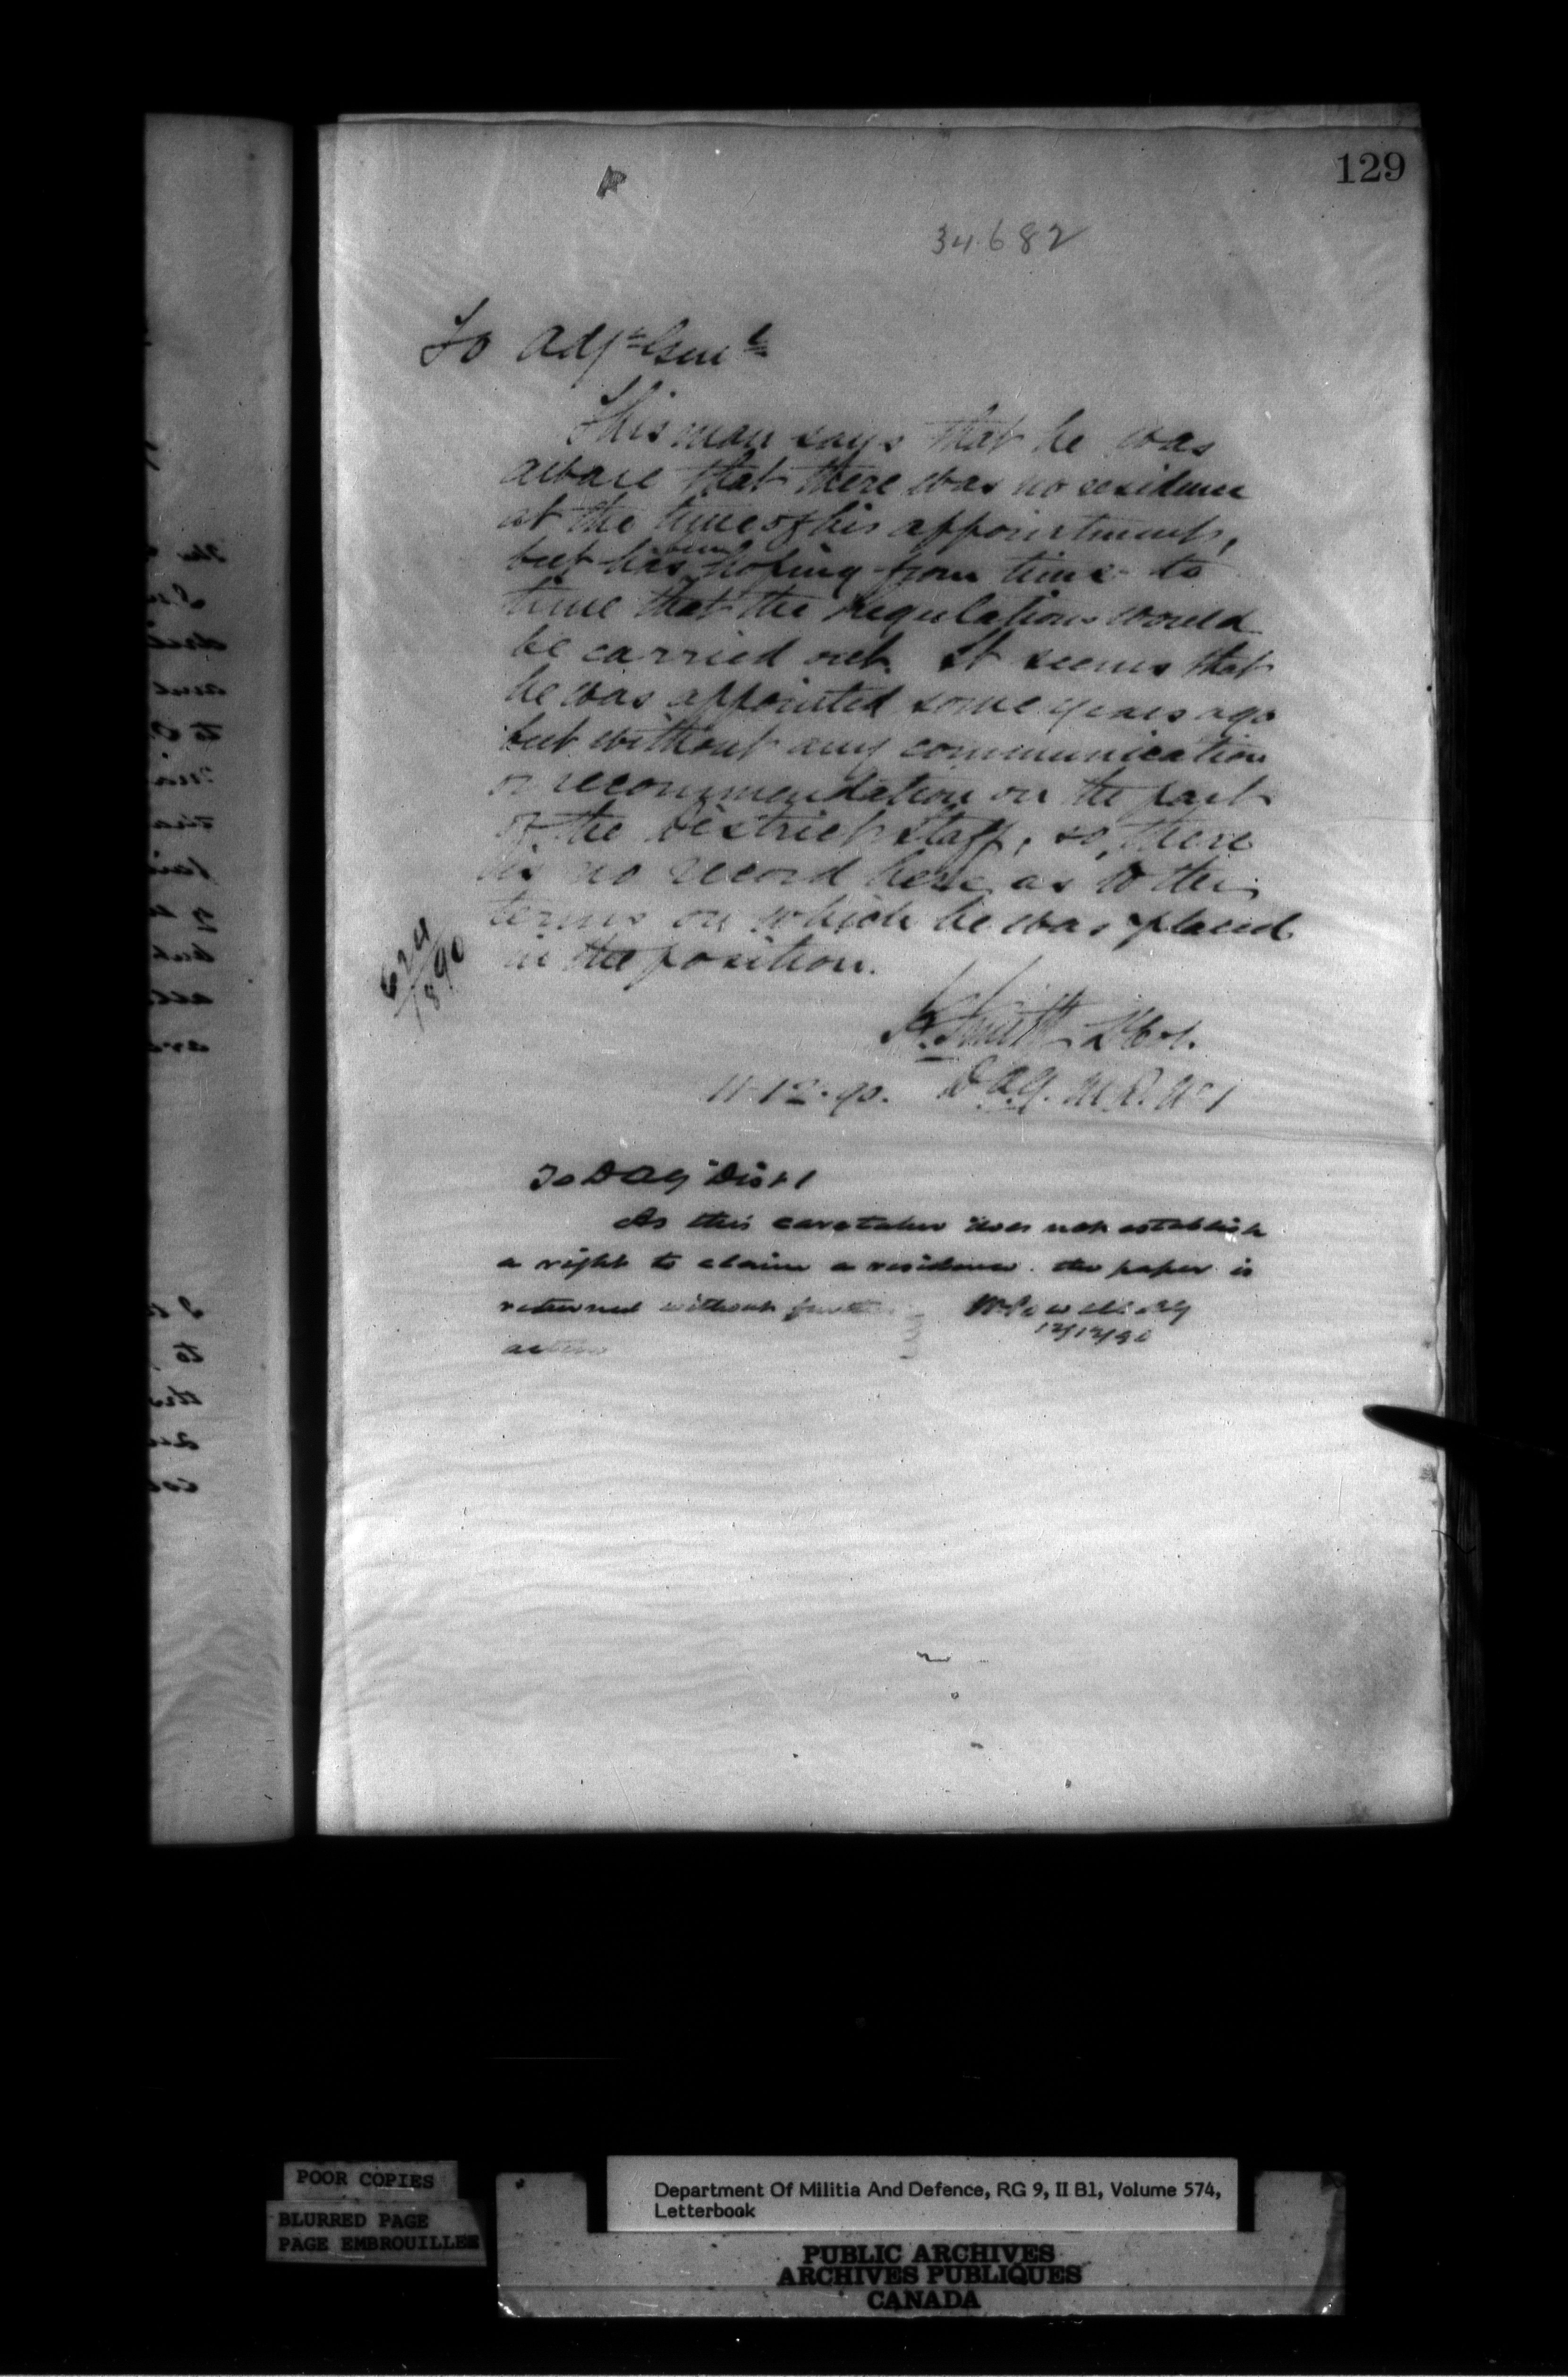 129
34682
To Adjt Genl
This man says that he was
aware that there was no residence
at the time of his appointment,
but has been hoping from time to
time that the Regulations would
be carried out. It seems that
he was appointed some years ago
but without any communication
or recommendation on the part
of the District Staff, so, there
is no record here as to the
terms on which he was placed
in the position.
624/1890
H. Smith Lt Col.
11-12-90. D.A.G. M.D. No 1
To DAG Dist 1
As this caretaker does not establish
a right to claim a residence the paper is
returned without further
action
W Powell AG
12/12/90
POOR COPIES
BLURRED PAGE
PAGE EMBROUILLEE
Department Of Militia And Defence, RG 9, II B1, Volume 574,
Letterbook
PUBLIC ARCHIVES
ARCHIVES PUBLIQUES
CANADA